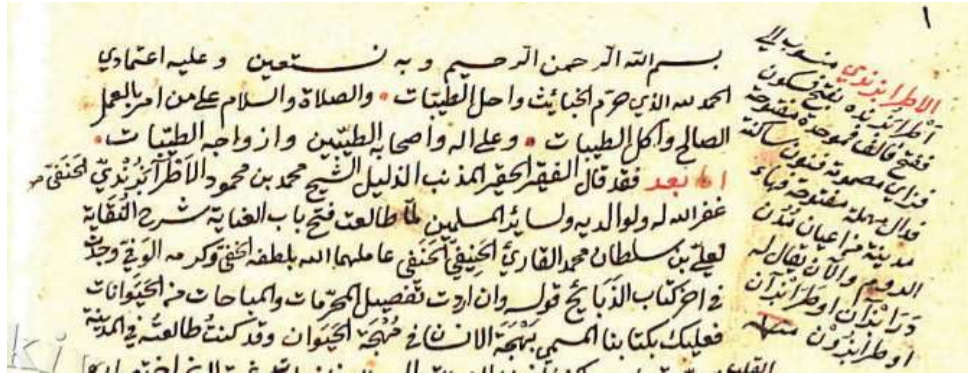 ١
بسم الله الرحمن الرحيم وبه نستعين وعليه اعتمادي
الحمد لله الذي حرم الخبائث واحل الطيبات والصلاة والسلام على من امر بالعمل
الصالح وأكل الطيبات وعلى اله واصحابه الطيبين وازواجه الطيبات
اما بعد فقد قال الفقير الحقير المذنب الذليل الشيخ محمد بن محمود الاطرابزندي الحنفي
غفر الله له ولوالديه ولساير المسلمين لما طالعت فتح باب العناية شرح النقاية
لعلي بن سلطان محمد القاري الحنيفي الحنفي عاملهما الله بلطفه الخفي وكرمه الوفي وجدت
في اخر كتاب الذبايح قوله وان اردت تفصيل المحرمات والمباحات من الحيوانات
فعليك بكتابنا المسمى بهجة الانسان في مهجة الحيوان وقد كنت طالعته في المدينة
الاطرابزندي منسوب الي
أطرابزنده بفتح فسكون
ففتح فالف فموحدة مفتوحة
فزاي مضمومة فنون ساكنة
فدال مهملة مفتوحة وهاء
مدينة من اعيان مدن
الروم والآن يقال له
اوطرابزون